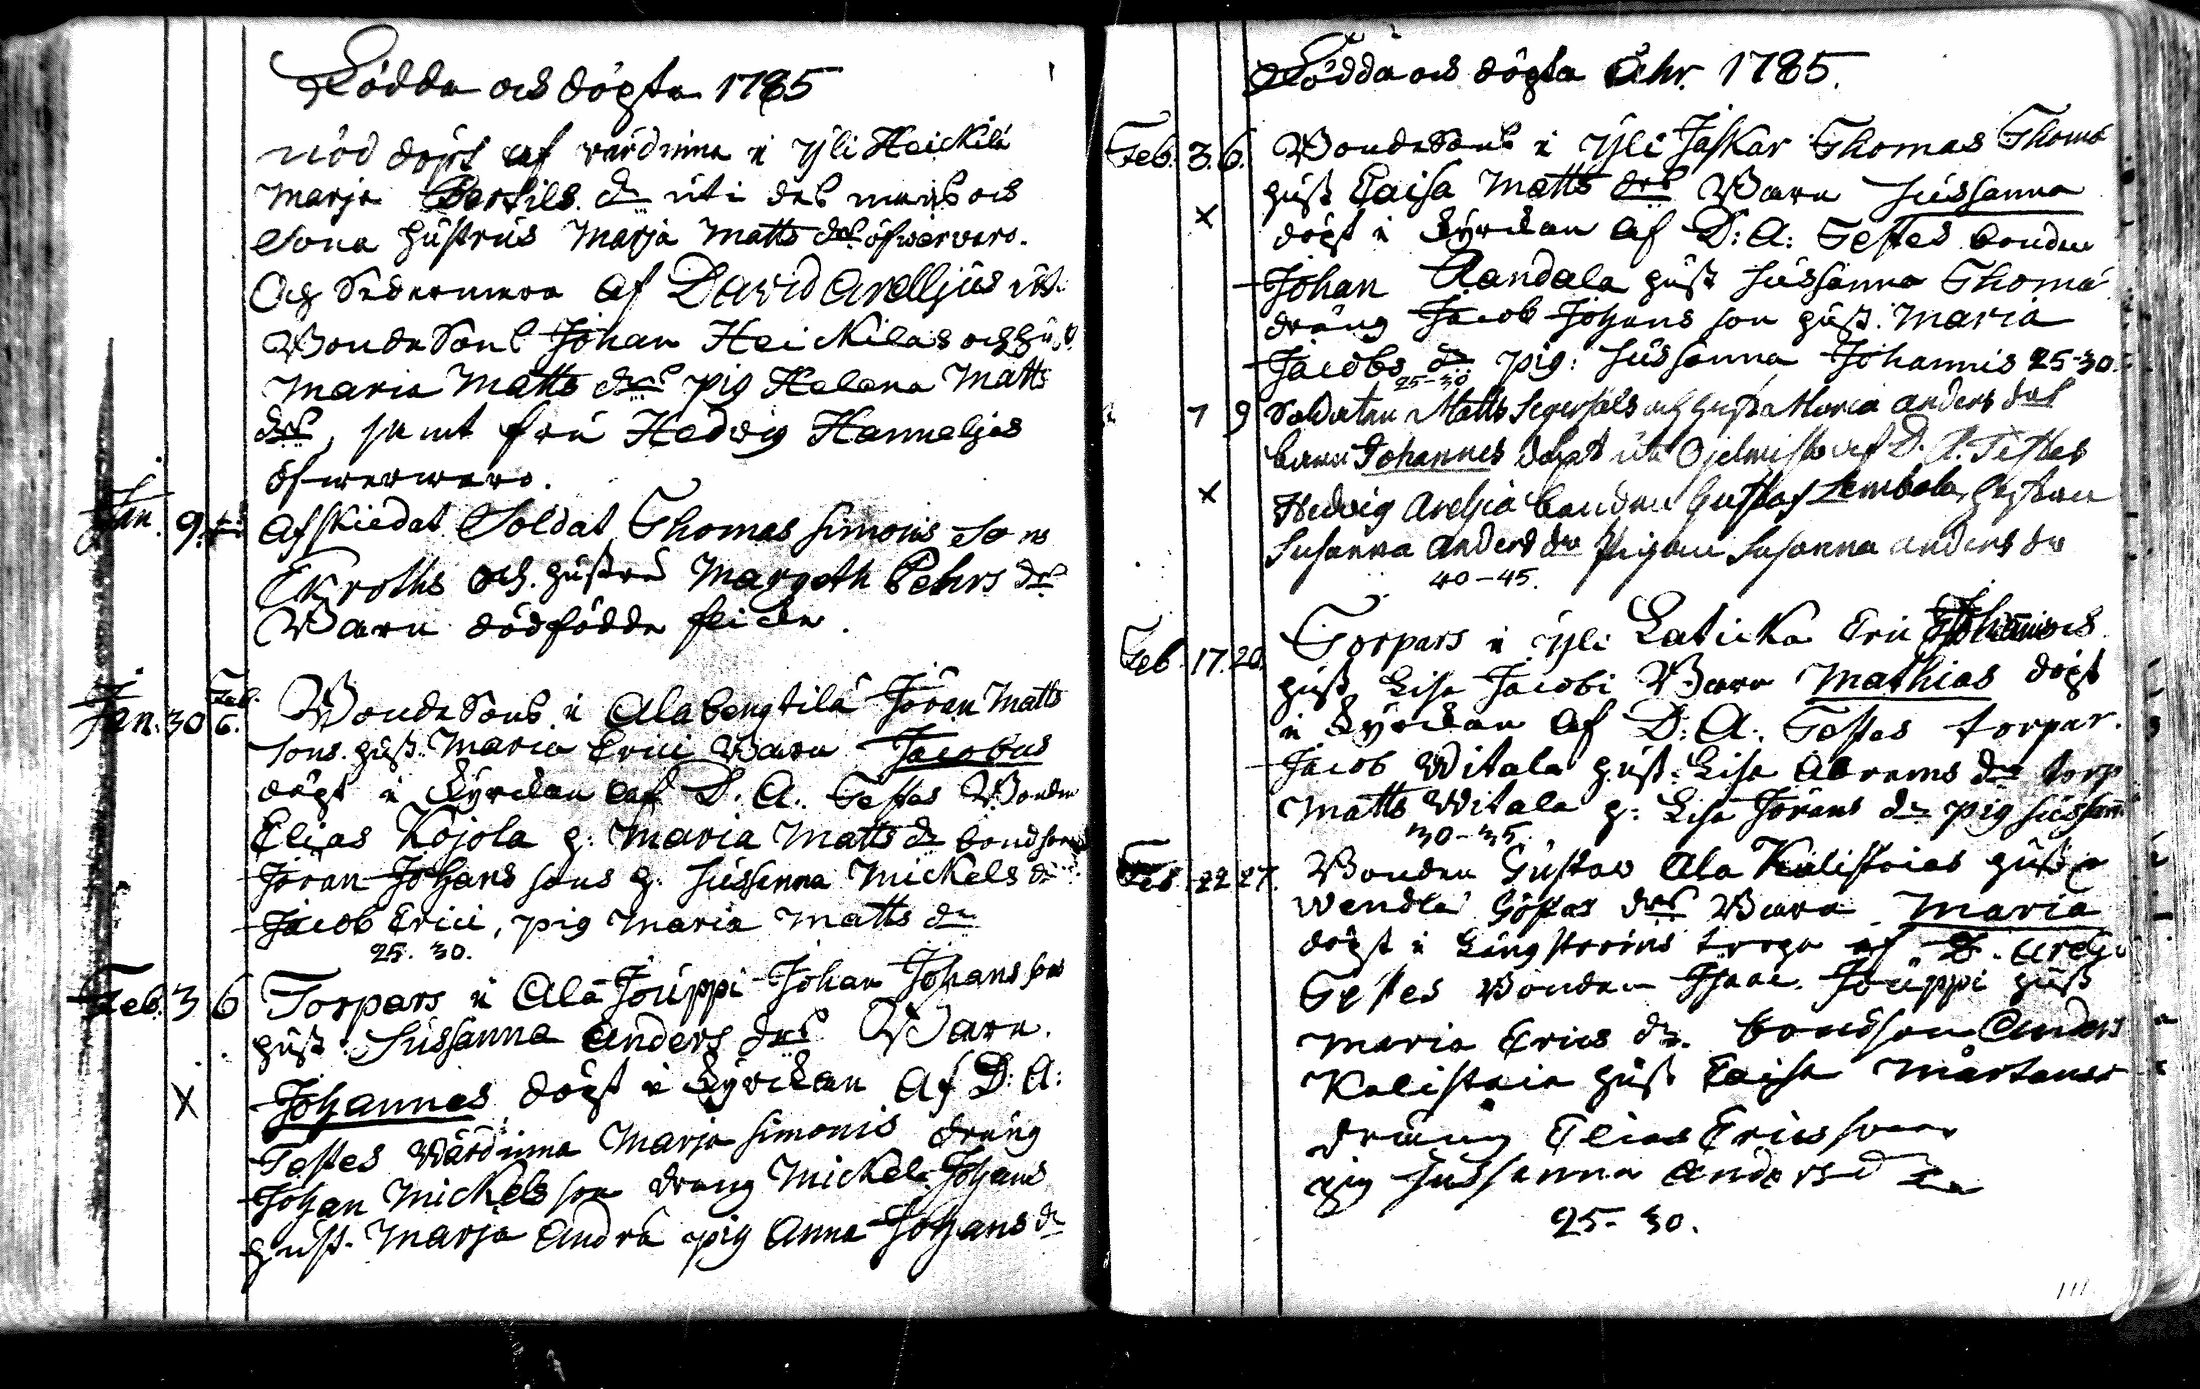 Födda och döpta 1785
nöd döpt af värdinna i Yli Heickilä
Marja Bertils dr uti des mans och
Sona hustrus Marja Matts drs öfwervaro.
Och sedermera af David Arelljus
Bonde Sons Johan Heickilas och hust.
Maria Matts drs pig Helena Matts
drs, samt fru Hedvig Hanneljas
öfwerwaro.
Jan. 9. Afskiedat Soldat Thomas Simons Sons
Ekroths och hustru Margeth Pehrs drs
Barn dödfödde flicka.
Jan. 30 Feb. 6. Bonde Sons i Ala Bengtilä Jöran Matts
Sons hust. Maria Erici Barn Jacobus
döpt i Kyrckan af D. A. Testes Bonden
Elias Kojola h. Maria Matts dr bondson
Jöran Johans sons h. Sussanna Mickels dr
Jacob Erici, pig Maria Matts dr
25. 30.
Feb. 3 6 Torpars i Ala Jouppi Johan Johans son
hust. Sussanna Anders drs Barn.
X Johannes döpt i Kyrckan af D: A:
Testes Wärdinna Marja Simonis dräng
Johan Mickels son dräng Mickel Johans
hust. Marja Andra pig Anna Johans dr
Födda och döpta Åhr. 1785.
Feb. 3. 6. Bonde Sons i Yli Jaskar Thomas Thoma
hust Caisa Matts drs Barn Sussanna
X döpt i Kyrckan af D: A: Testes bonden
Johan Randala hust Sussanna Thoma
dräng Jacob Johans son hust. Maria
Jacobs dr pig: Sussanna Johannis 25-30.
25-30
7 9 Soldaten Matts Segerfäls och hustru Maria Anders drs
barn Johannes döpt uti af D. A. Testes
X Hedvig Arelja bonden Gustaf Lembola, hustrun
Susanna Anders dr Pigan Susanna Anders dr
40-45.
Feb. 17. 20. Torpars i Yli Laticka Eric Johannis
hust Lisa Jacobi Barn Mathias döpt
i Kyrckan af D: A: Testes torpar.
Jacob Witala hust: Lisa Abrams dr torp
Matts Witala h: Lisa Jörans dr pig Sussann
30-35.
Feb. 22 27. Bonden Gustav Ala Kalistaias hust
Wendla Göstas drs Barn Maria
döpt i Längströms torpa af D. Arelj.
Testes Bonden Isaac Jouppi hust
Maria Erics dr. bondson Anders
Kalistaia hust Caisa Mårtens
dräng Elias Ericsson
pig Sussanna Anders dr
25-30.